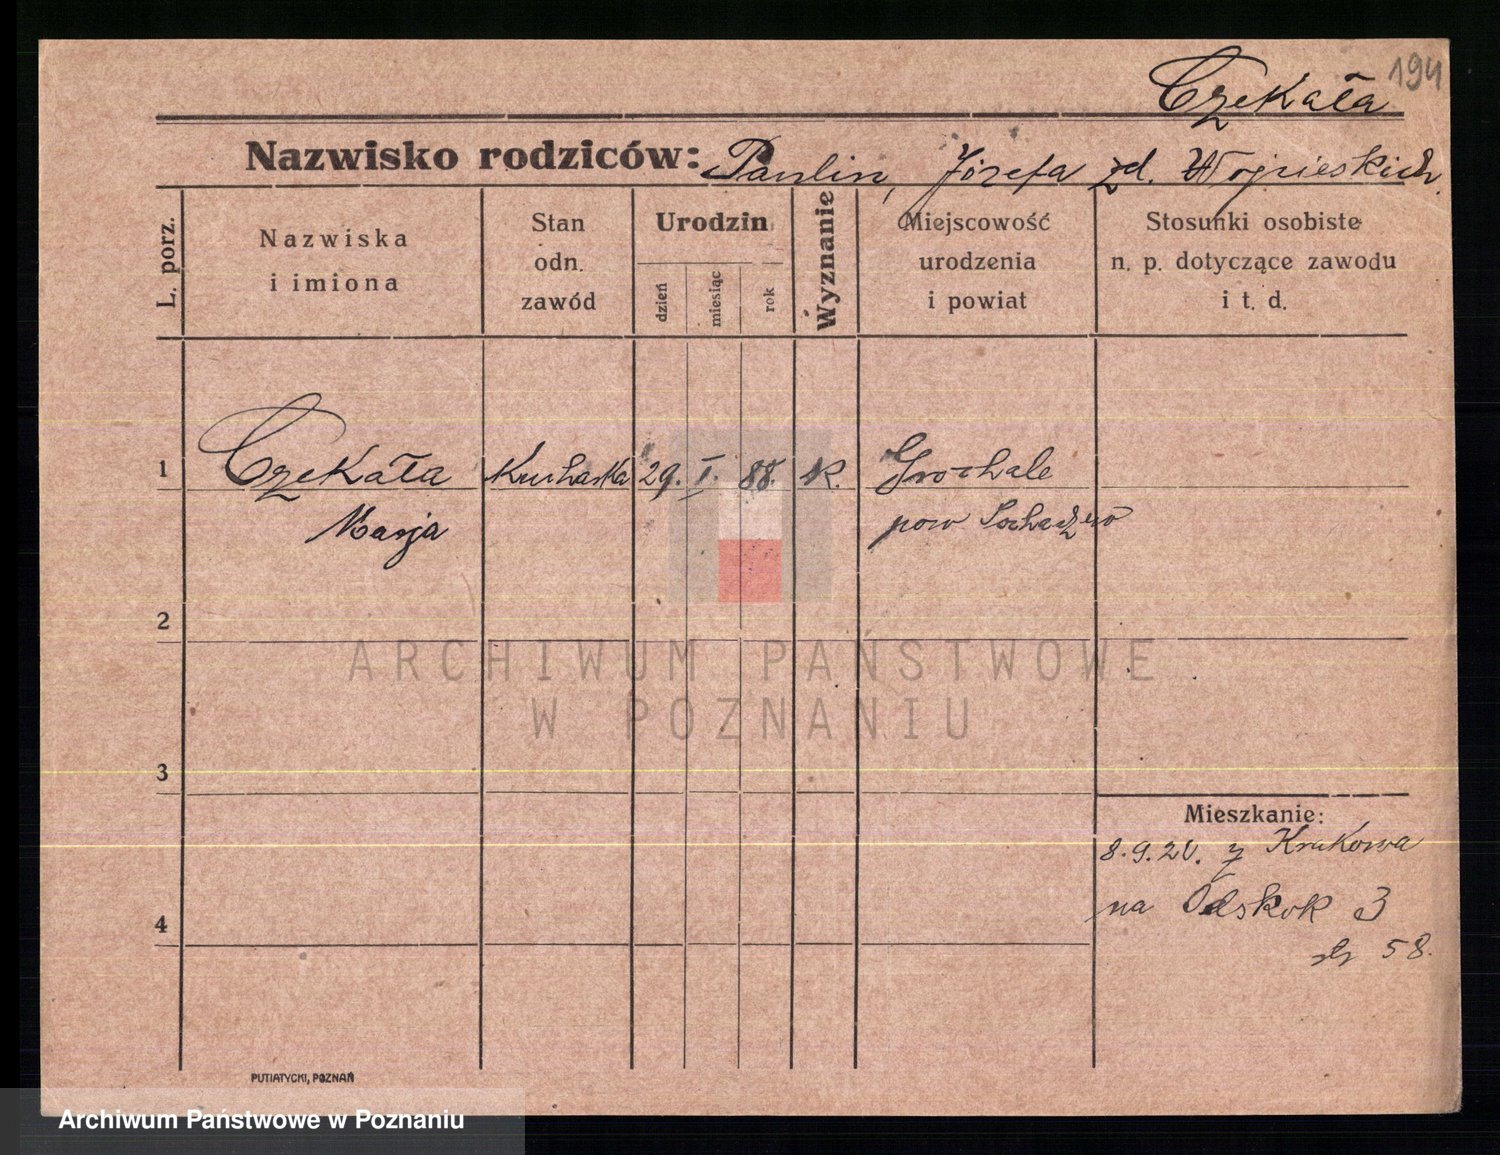 194
Czekała
Nazwisko rodziców: Paulin, Józefa zd. Wojcieskich
L. porz.
Nazwiska
i imiona
Stan
odn.
zawód
Urodzin
dzień
miesiąc
rok
Wyznanie
Miejscowość
urodzenia
i powiat
Stosunki osobiste
n. p. dotyczące zawodu
i t. d.
1 Czekała Kucharka 29. I. 88. K. Grochale
Marja pow Sochaczew
2
ARCHIWUM PAŃSTWOWE
W POZNANIU
3
Mieszkanie:
8.9.20. z Krakowa
na Odskok 3
58.
4
PUTIATYCKI, POZNAŃ
Archiwum Państwowe w Poznaniu